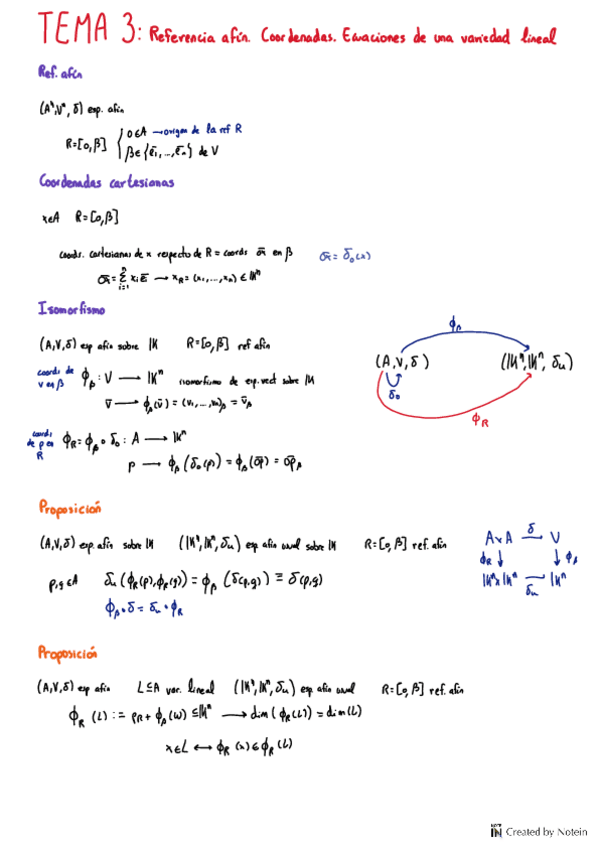 TEMA 3: Referencia afín. Coordenadas. Ecuaciones de una variedad lineal
Ref. afín
(Aⁿ, Vⁿ, δ) esp. afín
R=[o,β] { o∈A → origen de la ref R
β∈{e̅₁,...,e̅ₙ} de V
Coordenadas cartesianas
x∈A R=[o,β]
coords. cartesianas de x respecto de R = coords o̅x̅ en β o̅x̅ = δₒ(x)
o̅x̅ = Σⁿᵢ₌₁ xᵢe̅ᵢ → x_R = (x₁,...,xₙ) ∈ 𝕂ⁿ
Isomorfismo
(A,V,δ) esp afín sobre 𝕂 R=[o,β] ref afín
coords de v en β ϕ_β : V → 𝕂ⁿ isomorfismo de esp. vect sobre 𝕂
v̅ → ϕ_β(v̅) = (v₁,...,vₙ)_β = v̅_β
coords de p en R ϕ_R = ϕ_β ∘ δₒ : A → 𝕂ⁿ
p → ϕ_β(δₒ(p)) = ϕ_β(o̅p̅) = o̅p̅_β
ϕ_β
(A,V,δ) (𝕂ⁿ,𝕂ⁿ,δᵤ)
δₒ
ϕ_R
Proposición
(A,V,δ) esp. afín sobre 𝕂 (𝕂ⁿ,𝕂ⁿ,δᵤ) esp afín usual sobre 𝕂 R=[o,β] ref. afín
p,q∈A δᵤ(ϕ_R(p),ϕ_R(q)) = ϕ_β(δ(p,q)) ≡ δ(p,q)
ϕ_β ∘ δ = δᵤ ∘ ϕ_R
A×A δ V
ϕ_R ↓ ↓ ϕ_β
𝕂ⁿ×𝕂ⁿ δᵤ 𝕂ⁿ
Proposición
(A,V,δ) esp afín L⊆A var. lineal (𝕂ⁿ,𝕂ⁿ,δᵤ) esp afín usual R=[o,β] ref. afín
ϕ_R(L) := p_R + ϕ_β(W) ⊆ 𝕂ⁿ → dim(ϕ_R(L)) = dim(L)
x∈L ↔ ϕ_R(x) ∈ ϕ_R(L)
NOTE IN Created by Notein